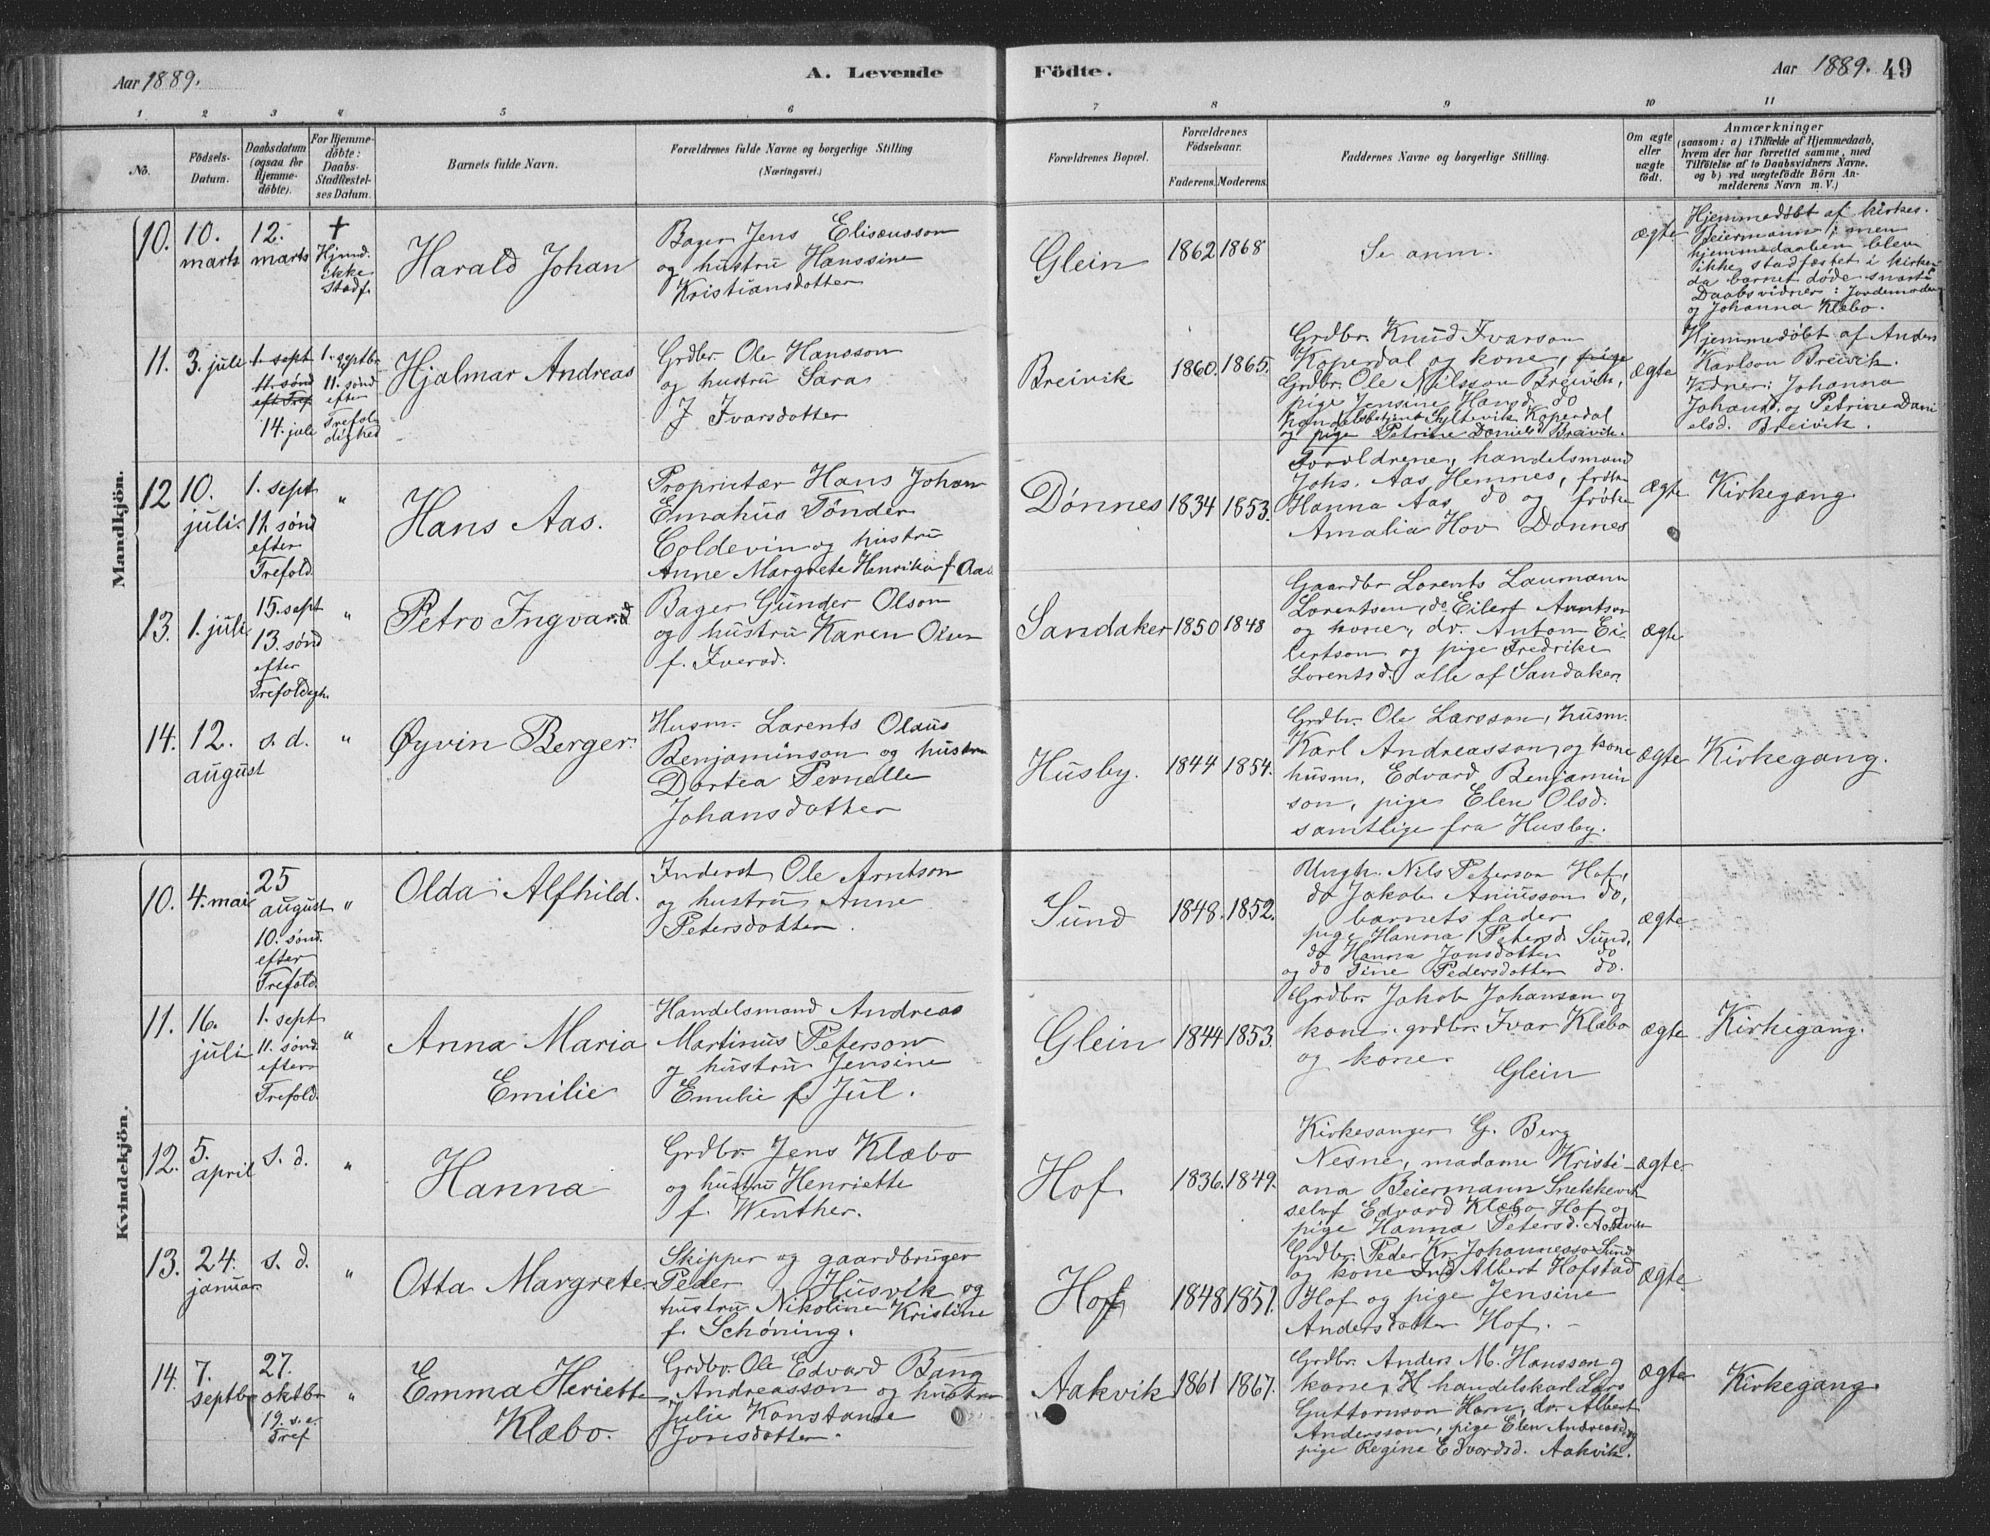 Aar 1889.
A. Levende
Födte.
Aar 1889. 49
1 2 3 4 5 6 7 8 9 10 11
No.
Födsels-
Datum.
Daabsdatum
(ogsaa for
Hjemme-
döbte).
For Hjemme-
döbte:
Daabs-
Stadfæstel-
ses Datum.
Barnets fulde Navn.
Forældrenes fulde Navne og borgerlige Stilling
(Næringsvei.)
Forældrenes Bopæl.
Forældrenes
Födselsaar.
Faderens. Moderens.
Faddernes Navne og borgerlige Stilling.
Om ægte
eller
uægte
födt.
Anmærkninger
(saasom: a) i Tilfælde af Hjemmedaab,
hvem der har forrettet samme, med
Tilföielse af to Daabsvidners Navne,
og b) ved uægtefödte Börn An-
melderens Navn m. V.)
Mandkjön.
10.
10.
marts
12.
marts
+
Hjmd.
ikke
stadf.
Harald Johan
Bager Jens Eliseusson
og hustru Hanssine
Kristiansdotter
Glein
1862
1868
Se anm.
ægte
Hjemmedøbt af kirkes.
Beiermann; men
hjemmedaaben blev
ikke stadfæstet i kirken
da barnet døde snart.
Daabsvidner: Jordemoder
og Johanna Klæbo.
11.
3. juli
1. sept
11. sønd
eft Tref
14. juli
1. septbr
11. sønd
efter
Trefol-
dighed
Hjalmar Andreas
Grdbr. Ole Hansson
og hustru Sara
J Ivarsdotter
Breivik
1860.
1865.
Grdbr. Knud Ivarson
Koperdal og kone, pige
Grdbr. Ole Nilsson Breivik,
pige Jensine Hansd. do
Handelsbetjent Syltevik Koperdal
og pige Petrine Danielsd Breivik.
ægte
Hjemmedøbt af Anders
Karlson Breivik.
Vidner: Johanna
Johansd. og Petrine Dani
elsd. Breivik.
12
10.
juli.
1. sept
11. sønd
efter
Trefold.
"
Hans Aas.
Proprietær Hans Johan
Emahus Tønder
Coldevin og hustru
Anne Margrete Henrika f. Aas
Dønnes
1834
1853.
Forældrene, handelsmand
Johs. Aas Hemnes, frøken
Hanna Aas do og frøken
Amalia Hov Dønnes
ægte
Kirkegang
13.
1. juli
15. sept
13. sønd
efter
Trefoldigh.
"
Petro Ingvard
Bager Gunder Olson
og hustru Karen Olsen
f. Iversd.
Sandaker
1850
1848
Gaardbr Lorents Laumann
Lorentsen, do. Eilert Arntson
og kone, do. Anton Ei-
lertson og pige Fredrike
Lorentsd. alle af Sandaker.
ægte
14.
12.
august
s. d.
"
Øyvin Berger.
Husm. Lorents Olaus
Benjaminson og hustru
Dortea Pernelle
Johansdotter
Husby.
1844
1854.
Grdbr. Ole Larsson, husm.
Karl Andreasson og kone
husm. Edvard Benjamin
son, pige Elen Olsd.
samtlige fra Husby.
ægte
Kirkegang.
Kvindekjön.
10.
4. mai
25
august
10. sønd.
efter
Trefold.
"
Olda Alfhild.
Inderst Ole Arntson
og hustru Anne
Petersdotter.
Sund
1848.
1852.
Ungk. Nils Peterson Hof,
do Jakob Aniusson do,
barnets fader
pige Hanna Petersd. Sund,
do Hanna Jonsdotter do
og do Tine Pedersdotter do.
ægte
11.
16.
juli
1. sept
11. sønd.
efter
Trefold.
"
Anna Maria
Emilie
Handelsmand Andreas
Martinus Peterson
og hustru Jensine
Emilie f. Jul.
Glein
1844
1853.
Grdbr. Jakob Johanson og
kone. grdbr. Ivar Klæbo
og kone.
Glein
ægte
Kirkegang.
12.
5.
april
s. d.
"
Hanna
Grdbr. Jens Klæbo
og hustru Henriette
f. Wenther.
Hof
1836.
1849.
Kirkesanger G. Berg
Nesne, madame Kristi-
ana Beiermann Snekkevik
selv Edvard Klæbo Hof og
pige Hanna Petersd. Aakvik
ægte
13.
24.
januar
s. d.
"
Otta Margrete
Skipper og gaardbruger
Peder Husvik og
hustru Nikoline Kristine
f. Schøning.
Hof
1848
1851.
Grdbr. Peder Kr. Johannesso Sund
og kone Ind Albert Hofstad
Hof og pige Jensine
Andersdotter Hof.
ægte
14.
7.
septbr
27.
oktbr
19. s. e.
Tref
"
Emma Heriette
Klæbo.
Grdbr. Ole Edvard Bang
Andreasson og hustru
Julie Konstanse
Jonsdotter.
Aakvik
1861
1867.
Grdbr. Anders M. Hansson og
kone, H handelskarl Lars
Guttormson Horn, do. Albert
Andersson, pige Elen Andreasd. og
pige Regine Edvardsd. Aakvik.
ægte
Kirkegang